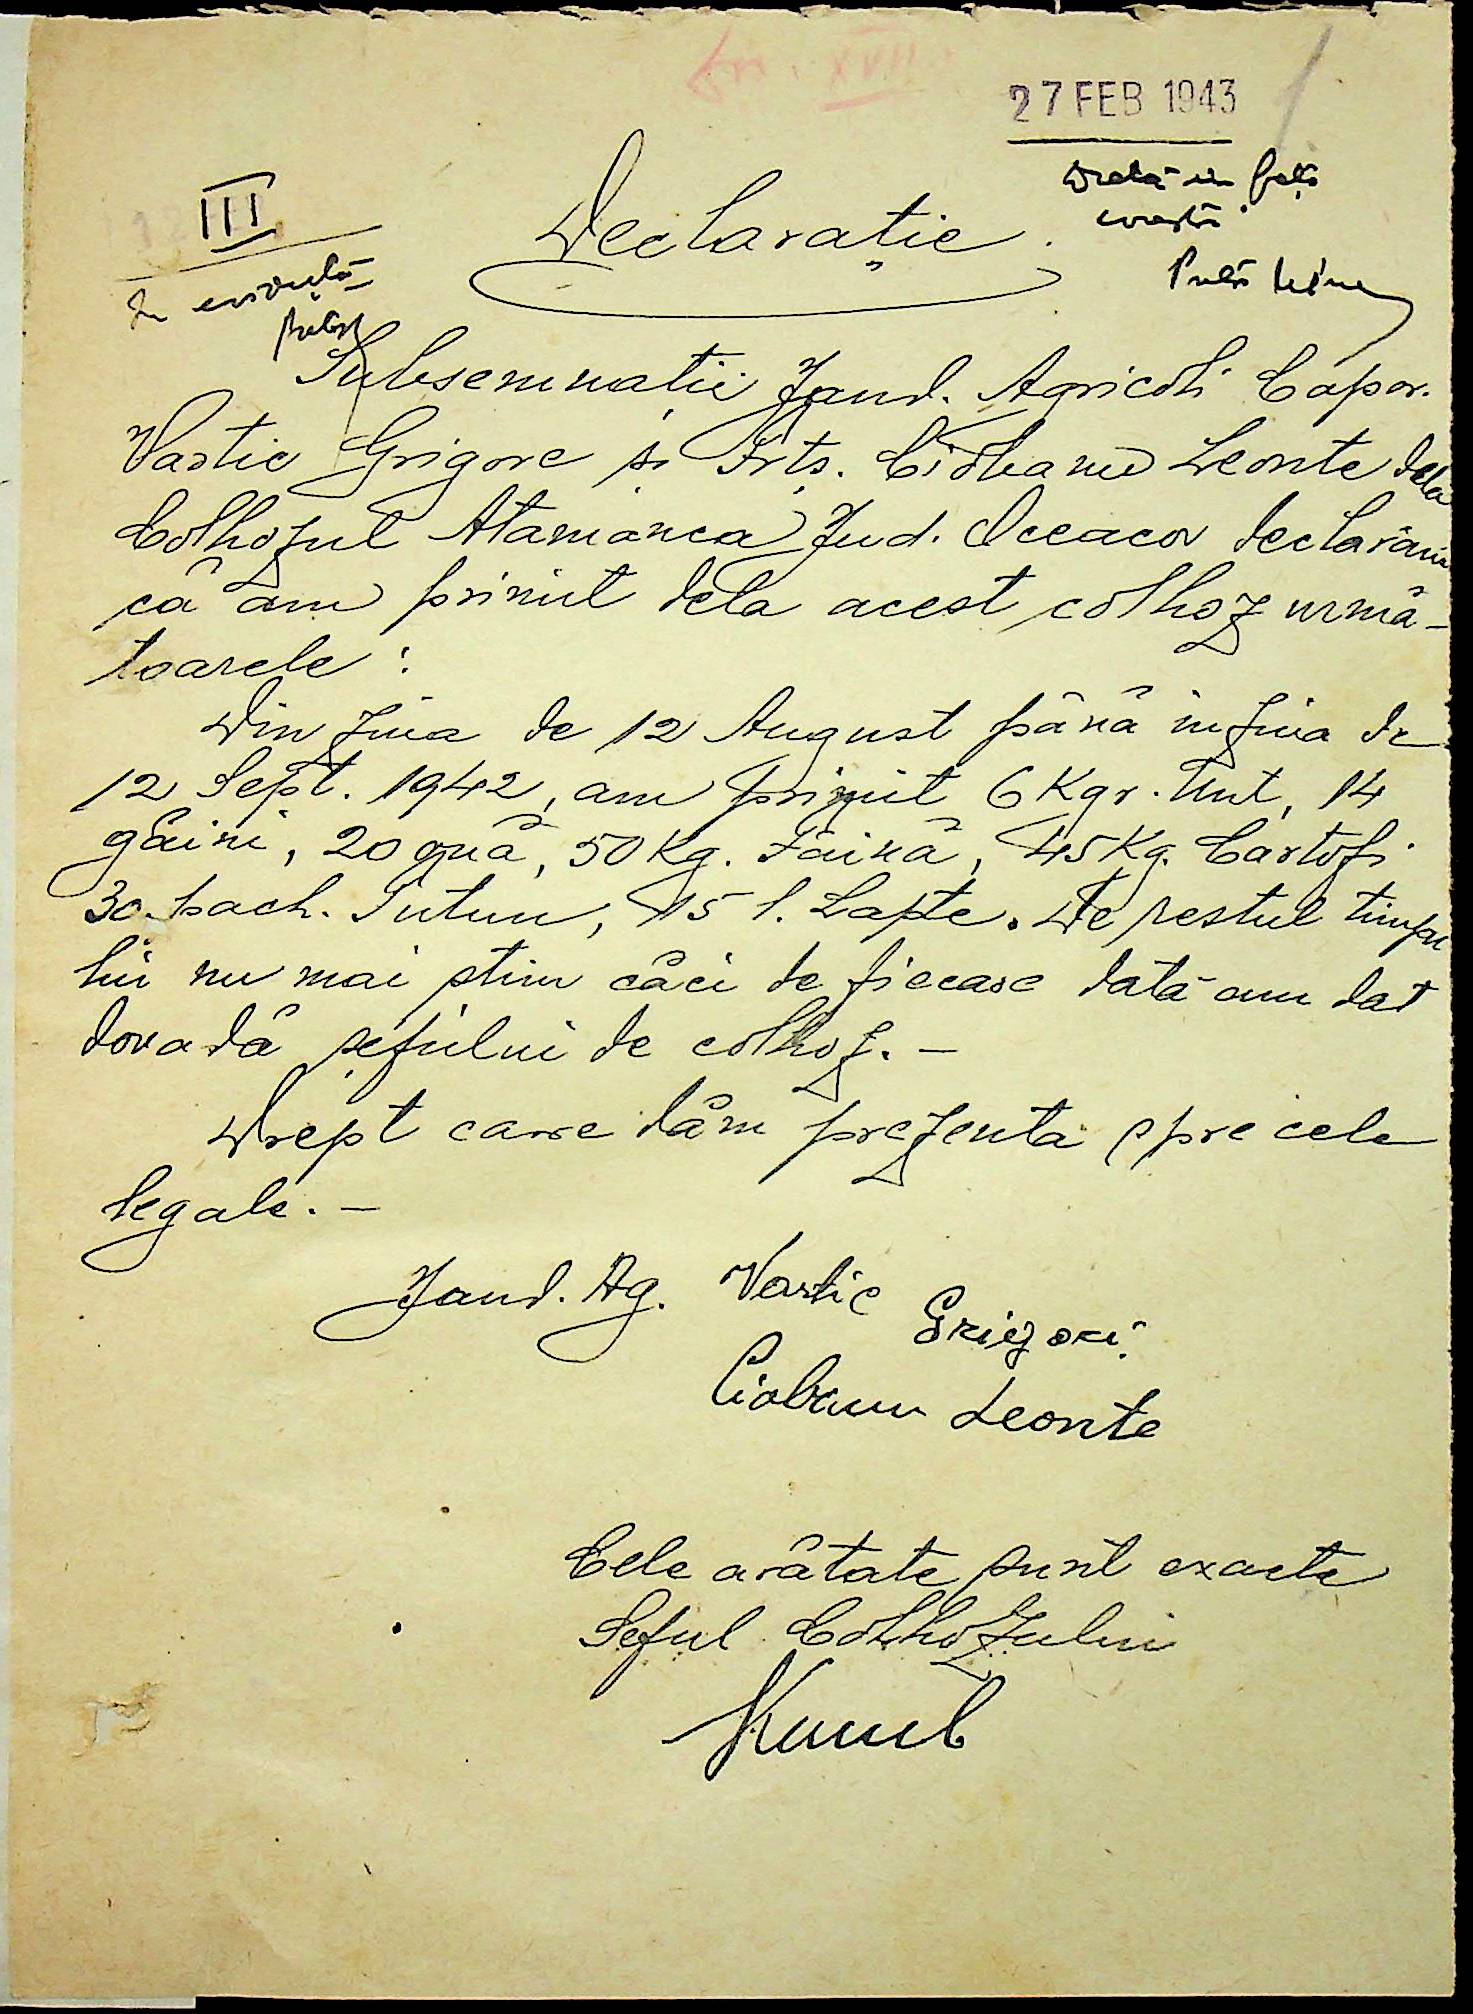 XVII.
27 FEB 1943
III
Declarație.
Dată în fața
Subsemnații Jand. Agricoli Capor.
Vartic Grigore și Frts. Ciobanu Leonte dela
Colhozul Atamanca Jud. Oceacov declarăm
că am primit dela acest colhoz urmă-
toarele :
Din ziua de 12 August până în ziua de
12 Sept. 1942, am primit 6 Kgr. Unt, 14
găini, 20 ouă, 50 Kg. Făină, 45 Kg. Cartofi
30 pach. Tutun, 15 l. Lapte. De restul timpu
lui nu mai știm căci de fiecare dată am dat
dovadă șefului de colhoz. —
Drept care dăm prezenta spre cele
legale. —
Jand. Ag. Vartic Grigori
Ciobanu Leonte
Cele arătate sunt exacte
Șeful Colhozului